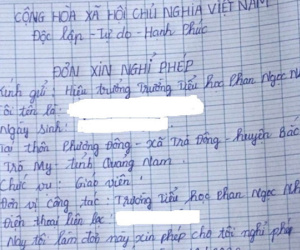 CỘNG HÒA XÃ HỘI CHỦ NGHĨA VIỆT NAM
Độc lập - Tự do - Hạnh Phúc
ĐƠN XIN NGHỈ PHÉP
Kính gửi: Hiệu trưởng Trường Tiểu học Phan Ngọc
Tôi tên là:
Ngày sinh:
Tại thôn Phương Đông - xã Trà Đông - huyện Bắc
Trà My tỉnh Quảng Nam.
Chức vụ: Giáo viên
Đơn vị công tác: Trường Tiểu học Phan Ngọc
Điện thoại liên lạc:
Nay tôi làm đơn này xin phép cho tôi nghỉ phép